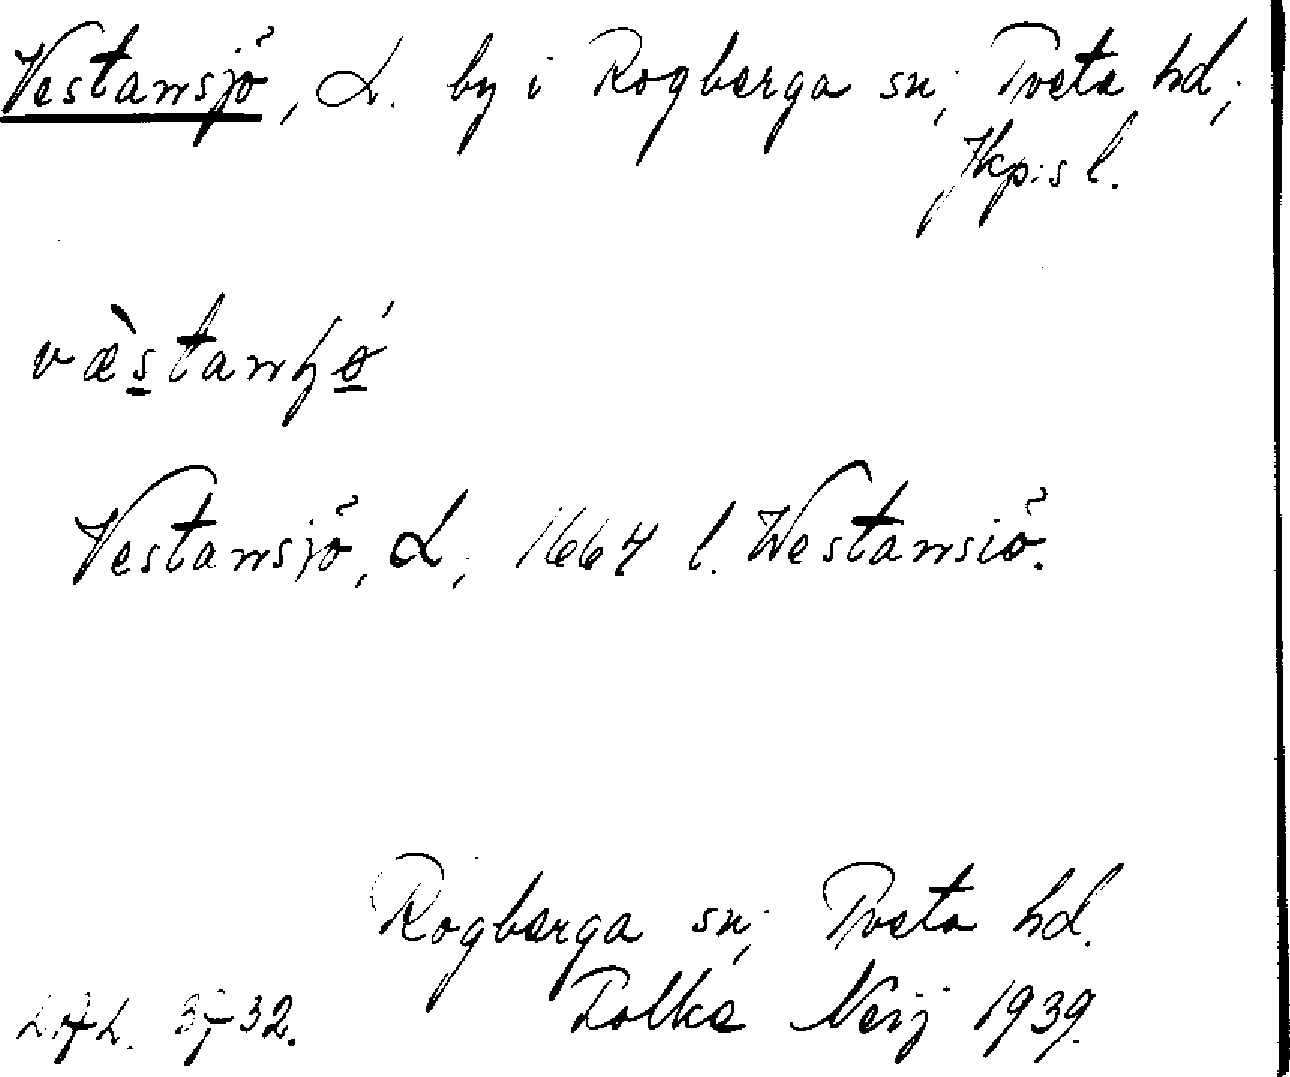 Vestansjö, L. by i Rogberga sn; Tveta hd;
Jkp:s l.
væ̀stanɧǿ
Vestansjö, L; 1664 l. Westansiö.
Rogberga sn; Tveta hd.
32.
Folke Neij 1939.